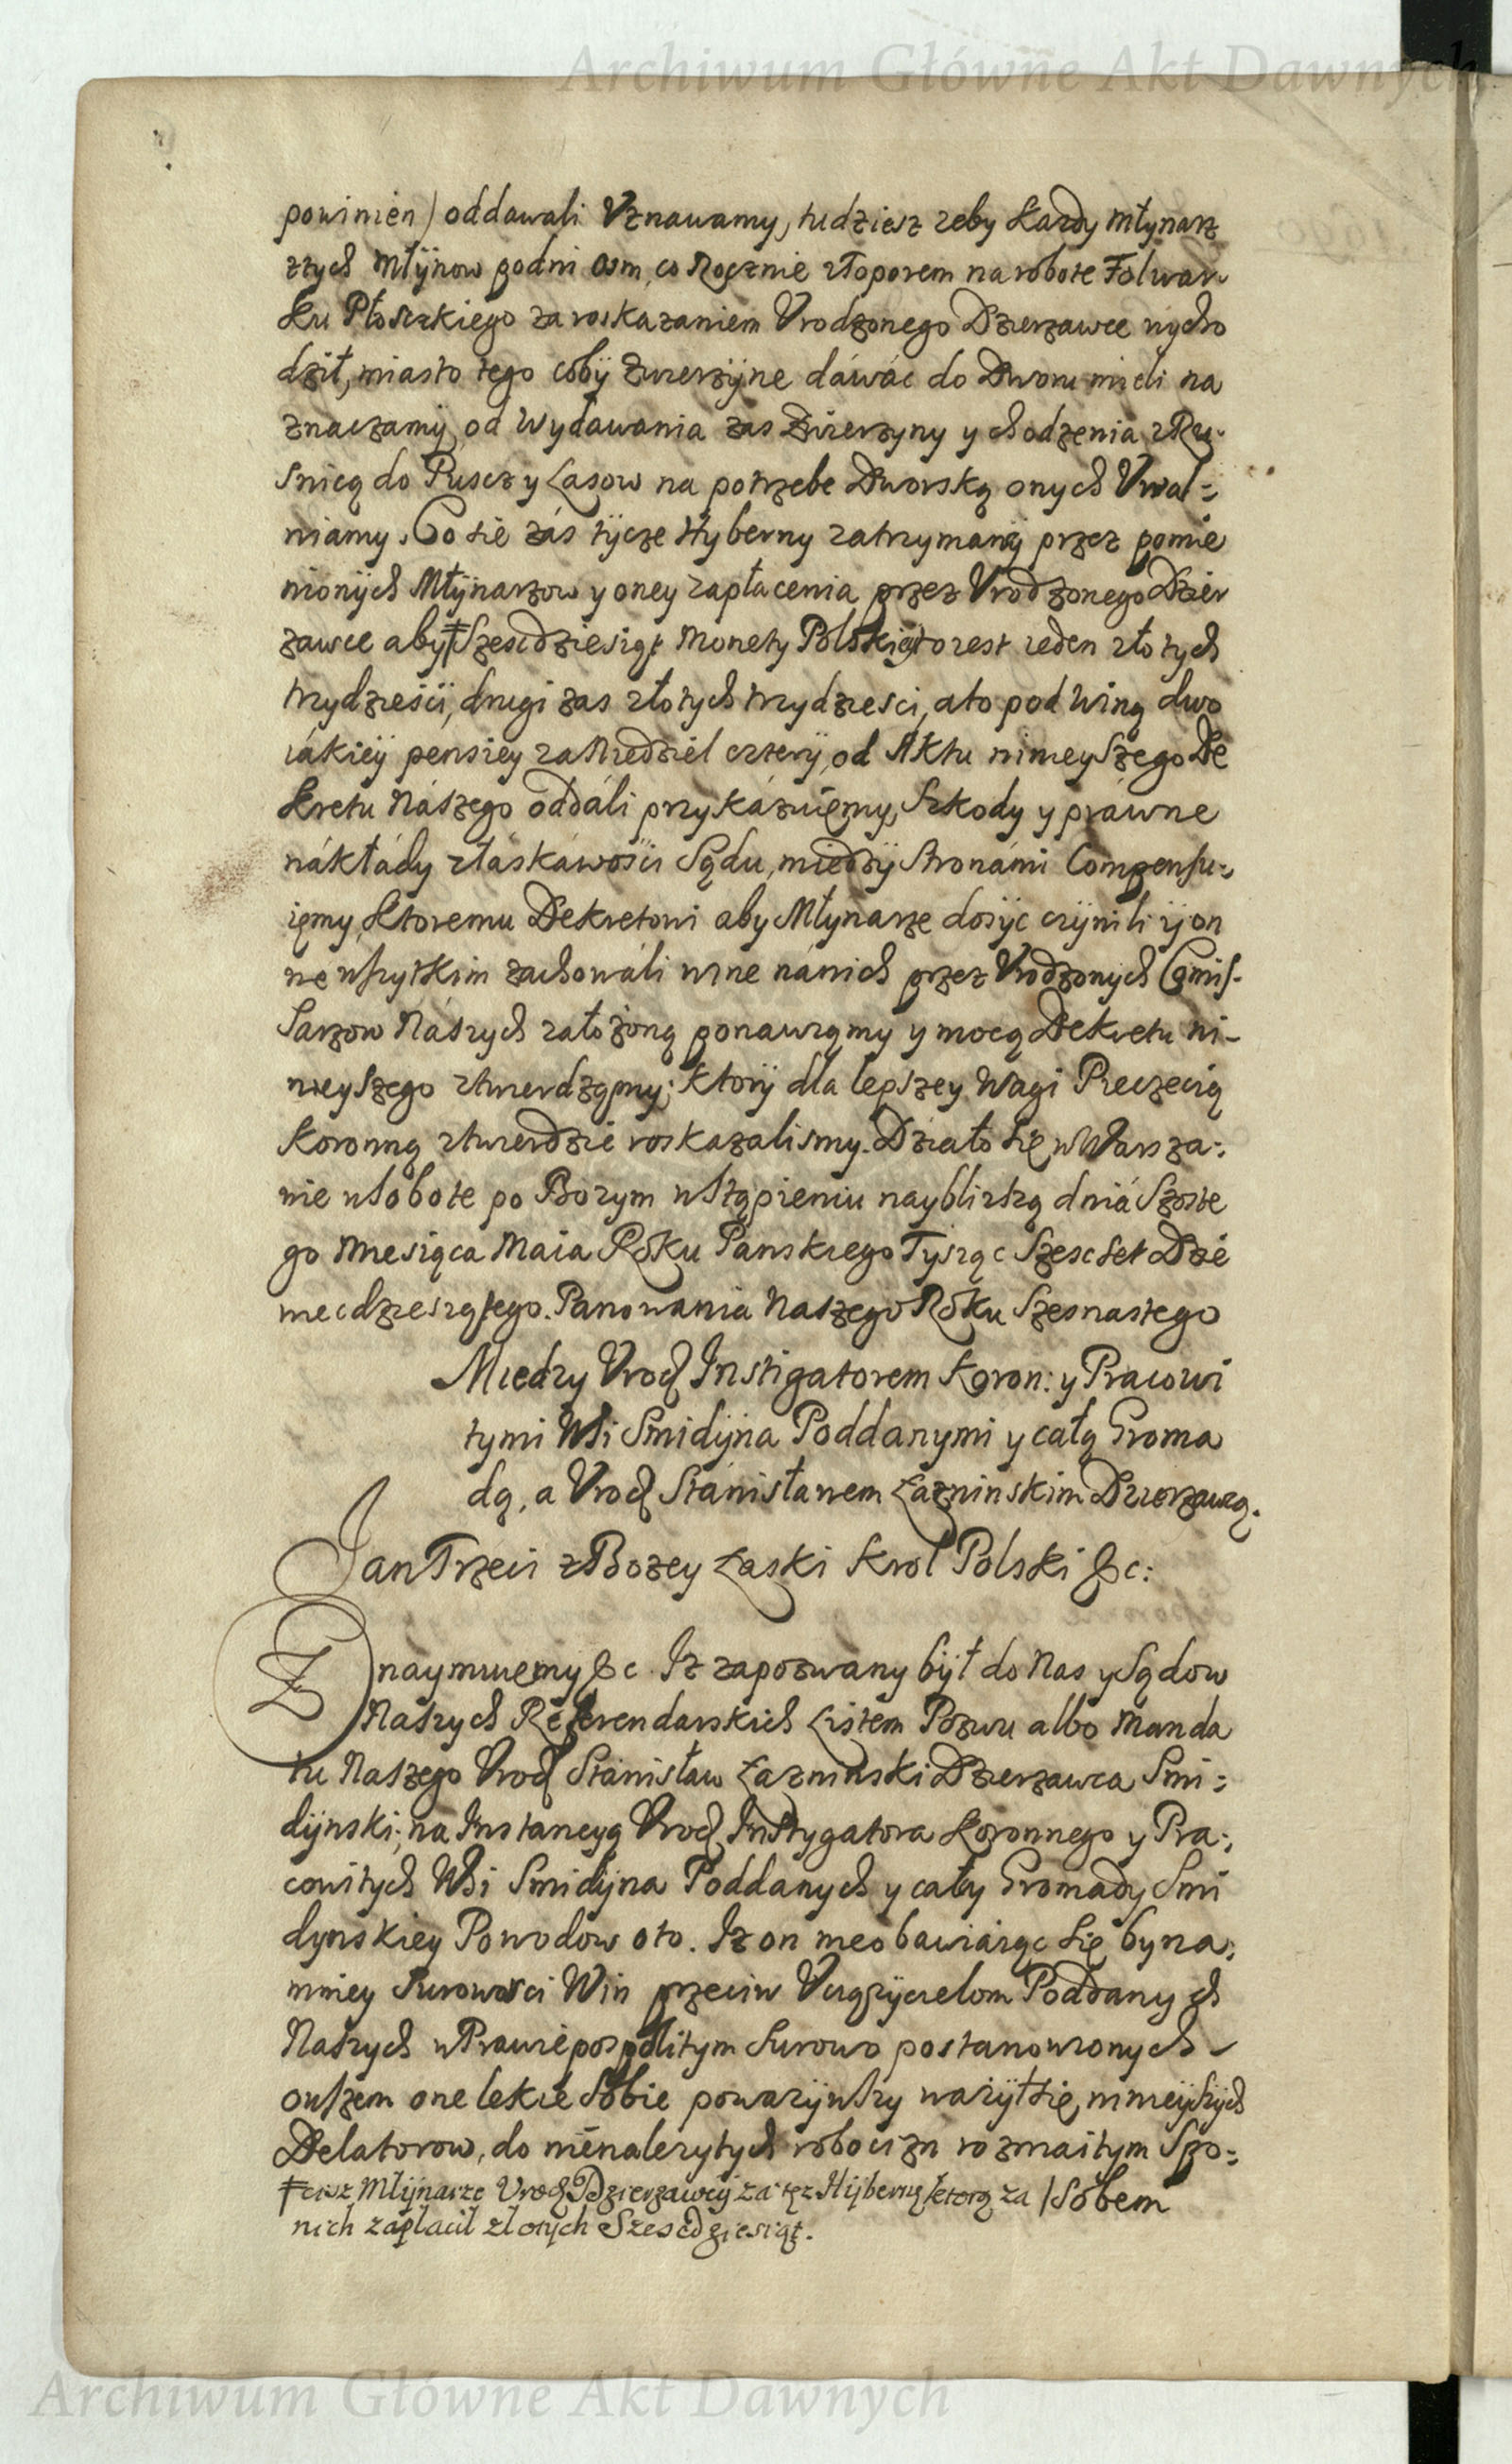 Archiwum Główne Akt Dawnych
powinien) oddawali Vznawamy, tudziesz zeby każdy Młynarz
z tych Młÿnow podni osm, co Rocznie z toporem na robote Folwar
ku Płoszkiego za roskazaniem Vrodzonego Dzierzawce wycho
dził, miasto tego cobÿ Zwierzÿne dáwác do Dworu mieli na
znaczamÿ, od Wydawania zas Zwierzyny y chodzenia z Ru-
snicą do Puscz y Lasow na potrzebe Dworską onych Vwal-
niamy. Co sie zás tÿcze Hyberny zatrzymanÿ przez pomie
nionÿch Młÿnarzow y oney zapłacenia przez Vrodzonego Dzier
zawce aby ‡ Szescdziesiąt Monety Polskiey to iest ieden złotych
trzydzieści, drugi zas złotych trzydziesci, a to pod Winą dwo
iákieÿ pensiey za Niedziel czterÿ, od Aktu ninieyszego De
kretu Nászego oddáli przykázuięmy, Szkody y práwne
nákłády z łáskáwości Sądu, miedzÿ stronámi Compensu-
ięmy, Ktoremu Dekretowi aby Młynarze dosÿc czÿnili ÿ on
we wszytkim zachowáli wine nánich przez Vrodzonych Comis-
sarzow Nászych załozoną ponawiąmy y mocą Dekretu ni-
nieyszego ztwierdzamy; Ktorÿ dla lepszey Wagi Pieczecią
Koronną ztwierdzic roskazalismy. Działo się w Warsza-
wie w Sobote po Bozym wstąpieniu naybliztzą dniá Szoste
go Miesiąca Maia Roku Panskiego Tysiąc Szescset Dzie
wiecdziesiątego. Panowania Naszego Roku Szesnastego
Miedzy Vrod Instigatorem Koron: y Pracowi
tymi Wsi Smidÿna Poddanymi y całą Groma
dą, a Vrod Stánisławem Łaznińskim Dzierzawcą.
Jan Trzeci z Bozey Łaski Krol Polski &c:
Znaymuiemy &c. Iz zapozwany bÿł do Nas y Sądow
Naszych Referendarskich Listem Pozwu albo Manda
tu Naszego Vrod Stánisław Łaznınski Dzierzawca Smi-
dÿnski, na Instancyą Vrod Instygatora Koronnego y Pra-
cowitych Wsi Smidÿna Poddanych y cały Gromady Smi
dynskiey Powodow oto. Iz on nieobawiaiąc się byna-
mniey surowosci Win przeciw Vciązÿcielom Poddanych
Naszych w Prawie pospolitym surowo postanowionych
owszem one lekce sobie powazÿwszy wazÿł się ninieÿszych
Delatorow, do nienalezytych robocizn rozmaitym Spo-
‡ ciz Młÿnarze Vrod Dzierzawcÿ za tęz Hÿbernę ktorą za / sobem
nich zapłacił złotÿch Szescdziesiąt.
Archiwum Główne Akt Dawnych